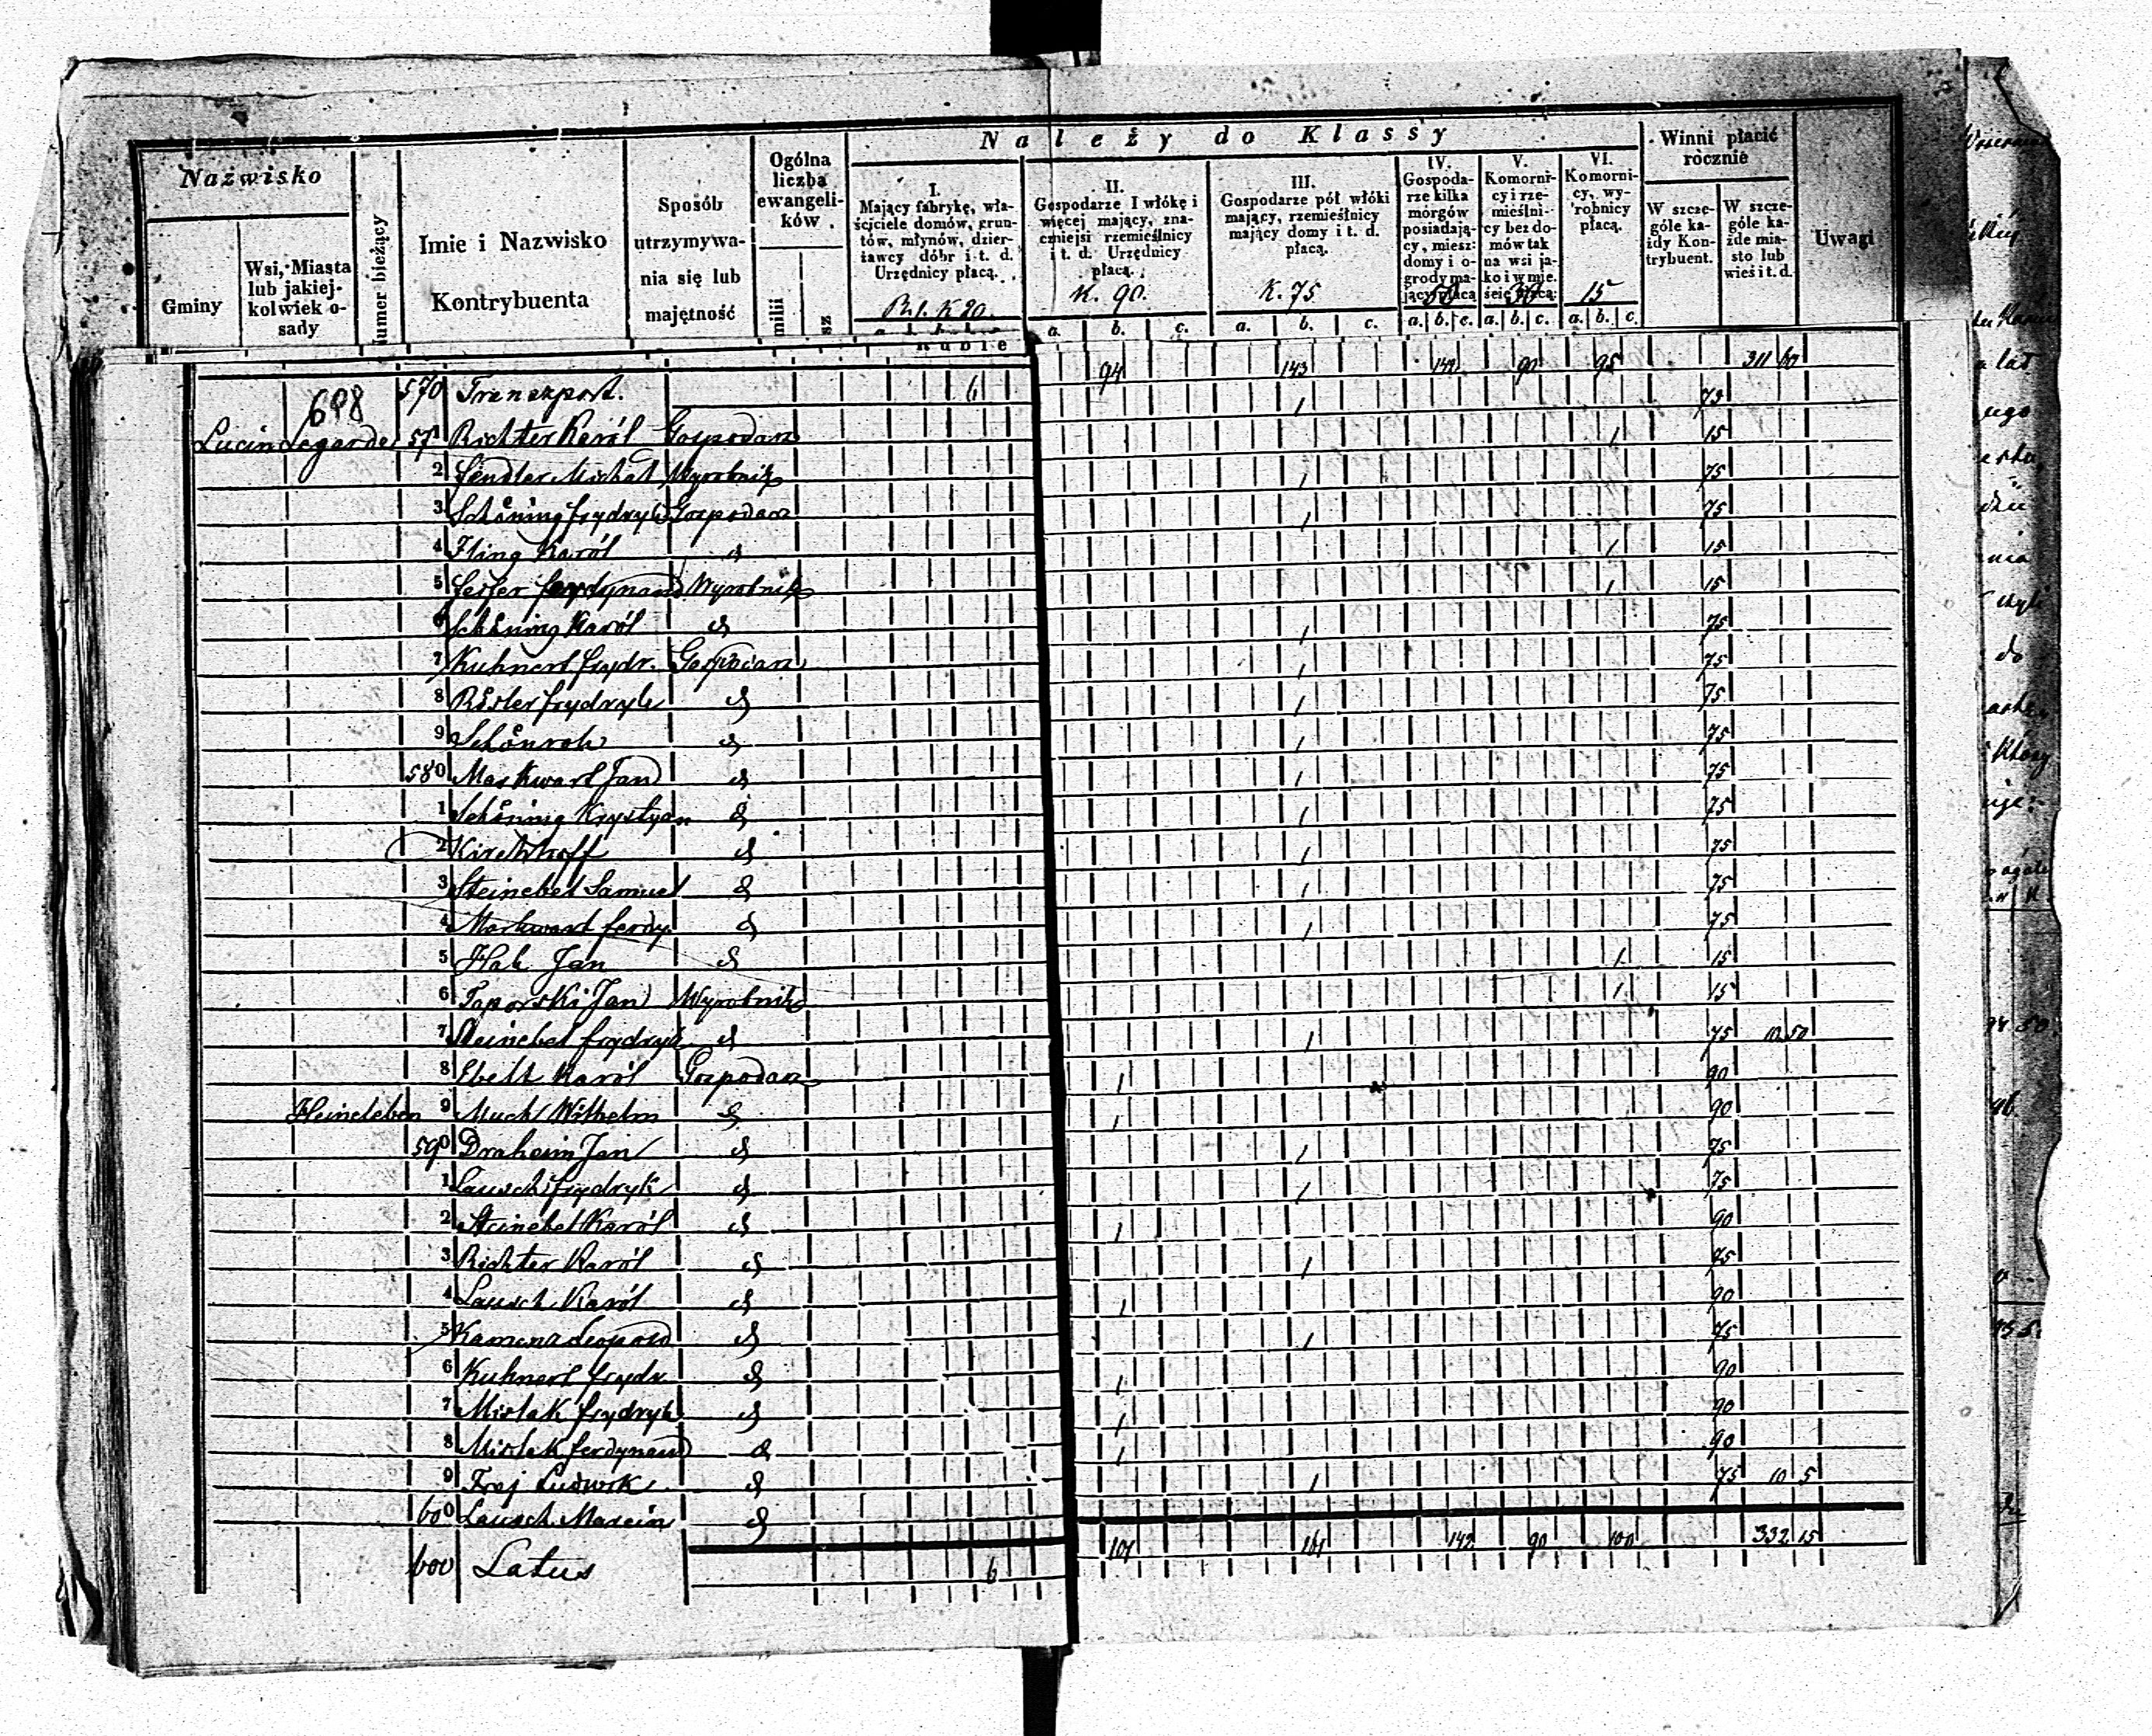 Należy do Klassy
Nazwisko
Gminy
Wsi, Miasta lub jakiej-kolwiek o-sady
Numer bieżący
Imie i Nazwisko
Kontrybuenta
Sposób utrzymywa-nia się lub majętność
Ogólna liczba ewangeli-ków
I. Mający fabrykę, wła-ściciele domów, grun-tów, młynów, dzier-żawcy dóbr i t. d. Urzędnicy płacą.
R. 1. K 20.
II. Gospodarze 1 włókę i więcej mający, zna-czniejsi rzemieślnicy i t. d. Urzędnicy płacą.
K. 90.
III. Gospodarze pół włóki mający, rzemieślnicy mający domy i t. d. płacą.
K. 75
IV. Gospoda-rze kilka morgów posiadają-cy, miesz: domy i o-grody ma-jący płacą
50
V. Komorni-cy i rze-mieślni-cy bez do-mów tak na wsi ja-ko i w mie. ście płacą:
30
VI. Komorni-cy, wy-robnicy płacą.
15
Winni płacić rocznie
W szcze-góle ka-żdy Kon-trybuent.
W szcze-góle ka-żde mia-sto lub wieś i t. d.
Uwagi
a. b. c. a. b. c. a. b. c. a. b. c. a. b. c.
Ruble
698 570 Transport. 6 94 143 142 90 95 311 60
Lucin Legarde 571 Richter Karól Gospodarz 1 75
2 Fendler Michał Wyrobnik 1 15
3 Schöning frydryk Gospodarz 1 75
4 Iling Karól d 1 75
5 ferdynand Wyrobnik 1 15
6 Schöning Karól d 1 15
7 Kuhnert frydr. Gospodarz 1 75
8 Rösler frydryk d 1 75
9 Schönroh d 1 75
580 Markwart Jan d 1 75
1 Schöning Krystyan d 1 75
2 Kirchhoff d 1 75
3 Steinebel Samuel d 1 75
4 Markwart ferdy. d 1 75
5 Hak Jan d 1 75
6 Toporski Jan Wyrobnik 1 15
7 Steinebel frydryk d 1 15
8 Ebelt Karól Gospodarz 1 75 10 50
Heineleben 9 Much Wilhelm d 1 90
590 Draheim Jan d 1 90
1 Lausch frydryk d 1 75
2 Steinebel Karól d 1 75
3 Richter Karól d 1 90
4 Lausch Karól d 1 75
5 Kamenz Leopold d 1 90
6 Kuhnert frydr d 1 75
7 Mislak frydryk d 1 90
8 Mislak ferdynand d 1 90
9 Frej Ludwik d 1 90
600 Lausch Marcin d 1 75 10 5
600 Latus 6 101 161 142 90 100 332 15